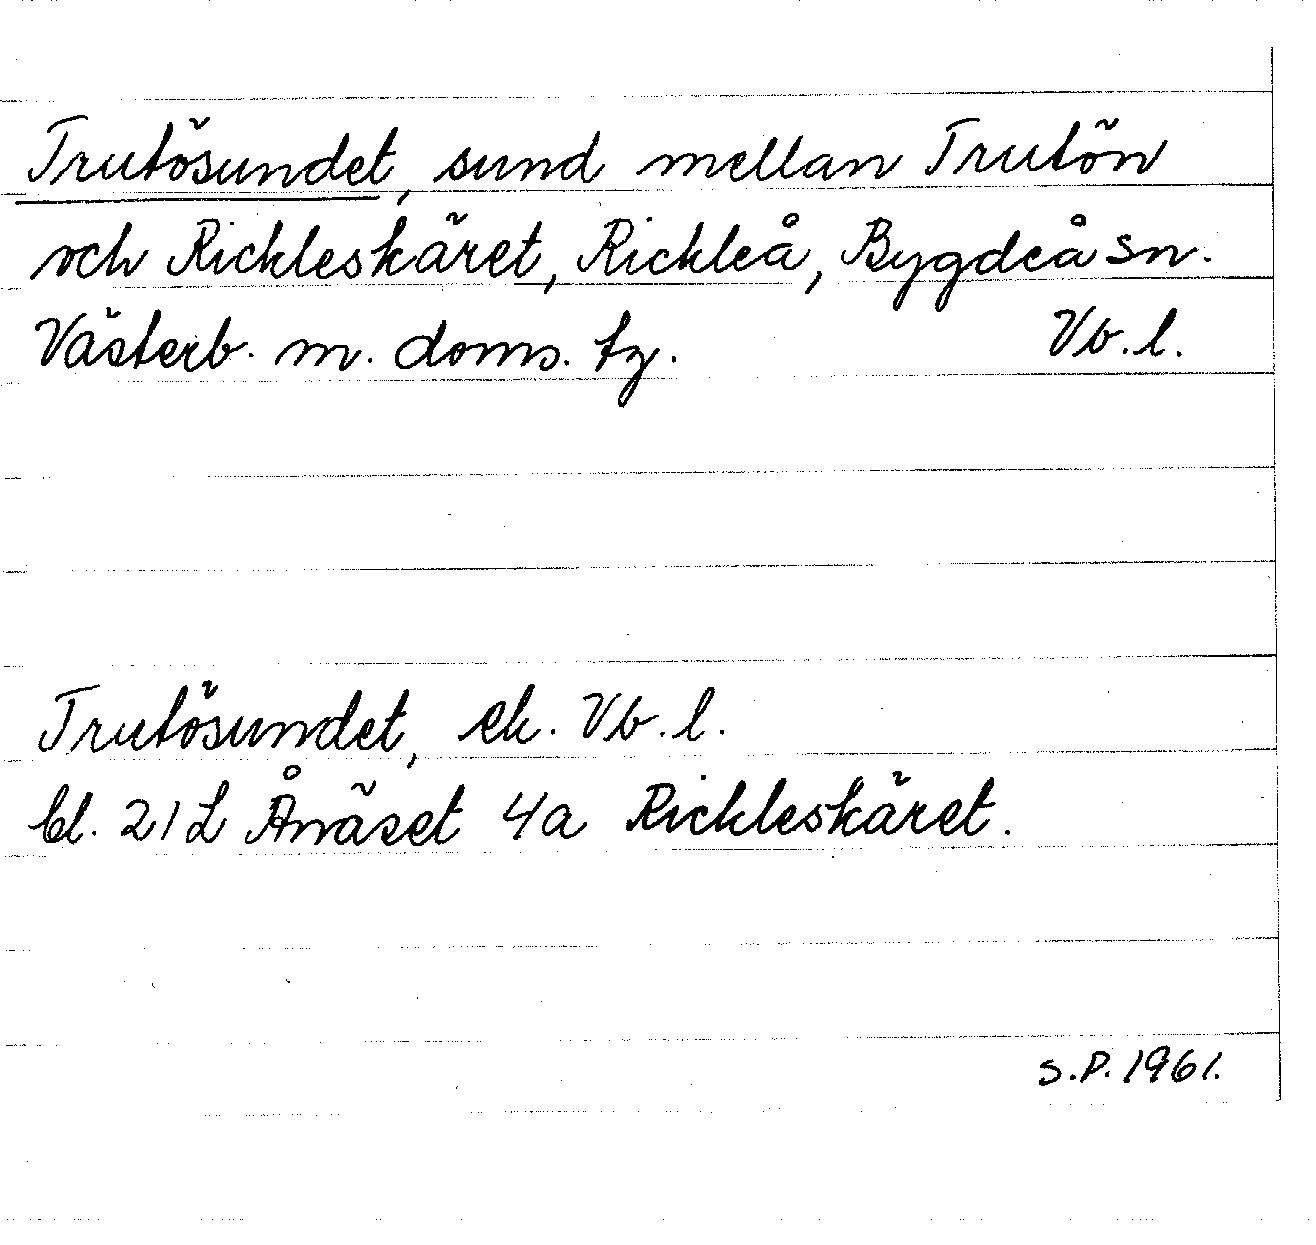 Trutösundet, sund mellan Trutön
och Rickleskäret, Rickleå, Bygdeå sn.
Västerb. m. doms. tg. Vb.l.
Trutösundet, ek. Vb.l.
bl. 21L Ånäset 4a Rickleskäret.
S.P. 1961.